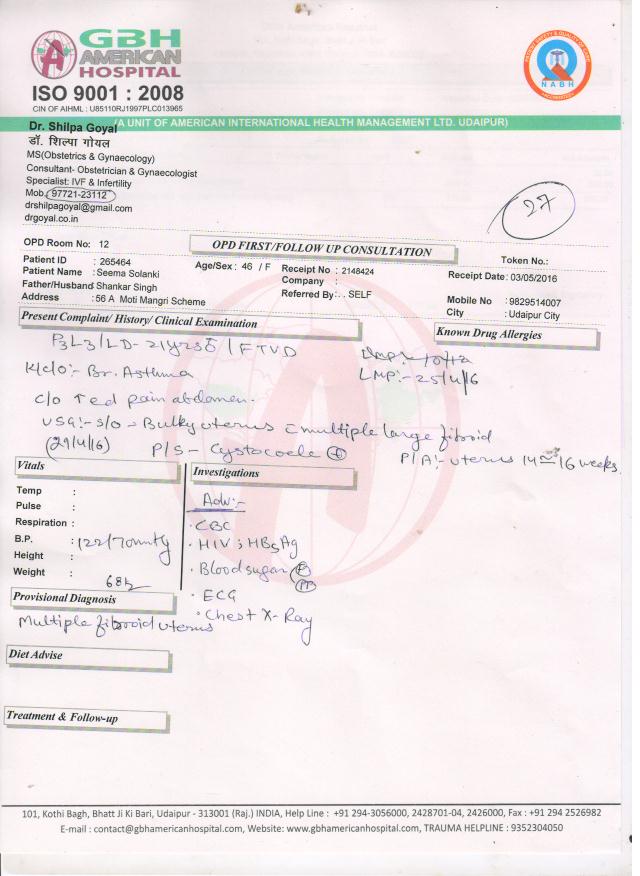 GBH
AMERICAN
HOSPITAL
ISO 9001 : 2008
CIN OF AIHML : U85110RJ1997PLC013965
PATIENT SAFETY & QUALITY OF CARE
NABH
(A UNIT OF AMERICAN INTERNATIONAL HEALTH MANAGEMENT LTD. UDAIPUR)
Dr. Shilpa Goyal
डॉ. शिल्पा गोयल
MS(Obstetrics & Gynaecology)
Consultant- Obstetrician & Gynaecologist
Specialist: IVF & Infertility
Mob. 97721-23112
drshilpagoyal@gmail.com
drgoyal.co.in
27
OPD Room No: 12
OPD FIRST/FOLLOW UP CONSULTATION
Token No.:
Patient ID : 265464
Age/Sex : 46 / F
Receipt No : 2148424
Receipt Date: 03/05/2016
Patient Name : Seema Solanki
Company :
Father/Husband Shankar Singh
Referred By : . . SELF
Mobile No : 9829514007
Address : 56 A Moti Mangri Scheme
City : Udaipur City
Present Complaint/ History/ Clinical Examination
Known Drug Allergies
P3L3/LD- 21yrs / FTVD
LMP:- 25/4/16
K/c/o:- Br. Asthma
c/o ↑ed pain abdomen.
USG:- s/o → Bulky uterus c̄ multiple large fibroid
(29/4/16)
P/S - Cystocoele ⊕
P/A:- uterus 14 - 16 weeks
Vitals
Investigations
Temp :
Pulse :
Respiration :
B.P. : 122/70mmHg
Height :
Weight :
68
Adv:-
· CBC
· HIV, HBsAg
· Blood sugar (F)
(PP)
· ECG
· Chest X-Ray
Provisional Diagnosis
Multiple fibroid uterus
Diet Advise
Treatment & Follow-up
101, Kothi Bagh, Bhatt Ji Ki Bari, Udaipur - 313001 (Raj.) INDIA, Help Line : +91 294-3056000, 2428701-04, 2426000, Fax : +91 294 2526982
E-mail : contact@gbhamericanhospital.com, Website: www.gbhamericanhospital.com, TRAUMA HELPLINE : 9352304050